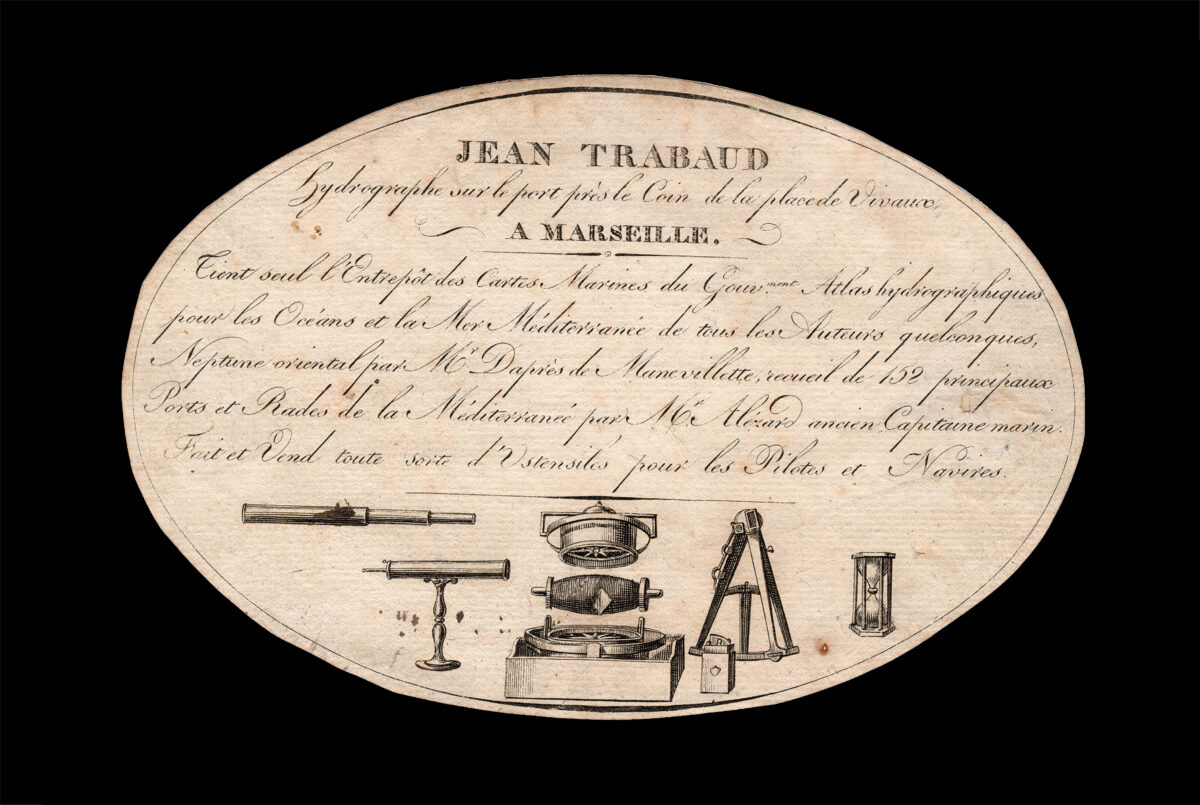 JEAN TRABAUD
Hydrographe sur le port près le Coin de la place de Vivaux,
A MARSEILLE.
Tient seul l'Entrepôt des Cartes Marines du Gouv.ment Atlas hydrographiques
pour les Océans et la Mer Méditerranée de tous les Auteurs quelconques,
Neptune oriental par Mr. Daprès de Manevillette, recueil de 152 principaux
Ports et Rades de la Méditerraneé par Mr. Alézard ancien Capitaine marin.
Fait et Vend toute sorte d'Ustensiles pour les Pilotes et Navires.